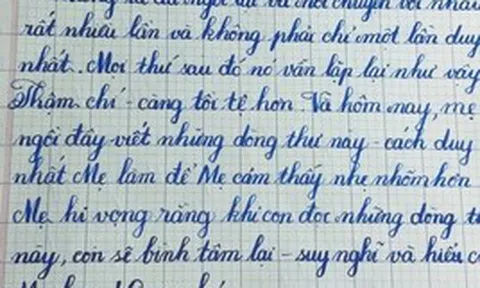 chúng ta đã ngồi lại và nói chuyện với nhau
rất nhiều lần và không phải chỉ một lần duy
nhất. Mọi thứ sau đó nó vẫn lặp lại như vậy
Thậm chí - càng tồi tệ hơn. Và hôm nay, mẹ
ngồi đây viết những dòng thư này - cách duy
nhất Mẹ làm để Mẹ cảm thấy nhẹ nhõm hơn
Mẹ hi vọng rằng khi con đọc những dòng t
này, con sẽ bình tâm lại - suy nghĩ và hiểu c